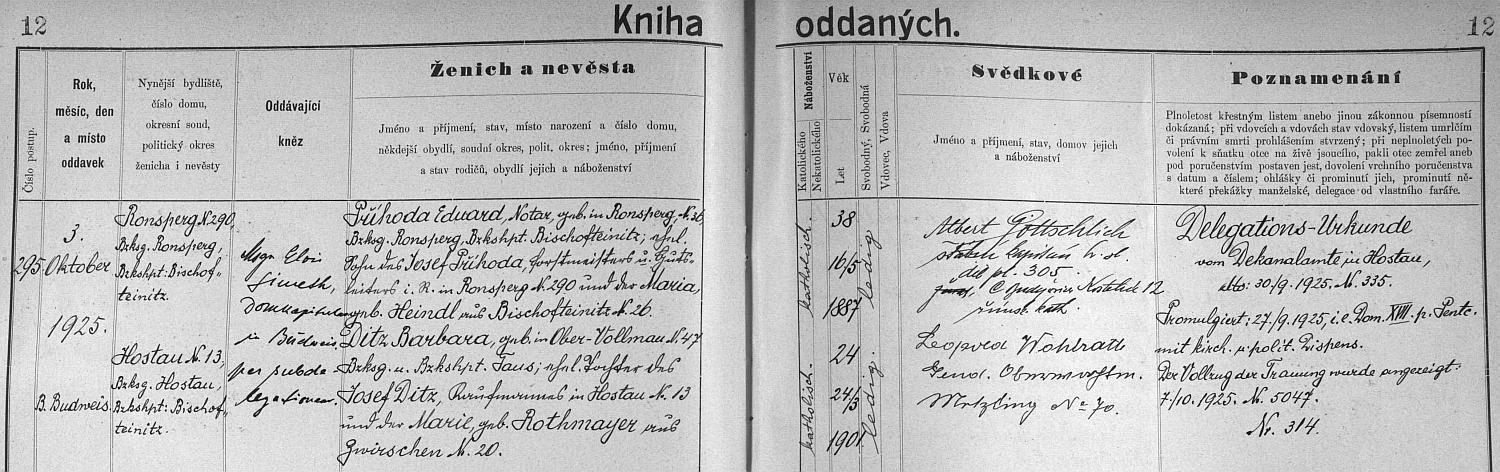 12
Kniha oddaných.
12
Číslo postup.
Rok,
měsíc, den
a místo
oddavek
Nynější bydliště,
číslo domu,
okresní soud,
politický okres
ženicha i nevěsty
Oddávající
kněz
Ženich a nevěsta
Jméno a příjmení, stav, místo narození a číslo domu,
někdejší obydlí, soudní okres, polit. okres; jméno, příjmení
a stav rodičů, obydlí jejich a náboženství
Náboženství
Katolického
Nekatolického
Věk
Let
Svobodný, Svobodná
Vdovec, Vdova
Svědkové
Jméno a příjmení, stav, domov jejich
a náboženství
Poznamenání
Plnoletost křestným listem anebo jinou zákonnou písemností
dokázaná; při vdovcích a vdovách stav vdovský, listem umrlčím
či právním smrti prohlášením stvrzený; při neplnoletých po-
volení k sňatku otce na živě jsoucího, pakli otec zemřel aneb
pod poručenstvím postaven jest, dovolení vrchního poručenstva
s datum a číslem; ohlášky či prominutí jich, prominutí ně-
které překážky manželské, delegace od vlastního faráře.
295
3.
Oktober
1925.
B. Budweis.
Ronsperg N. 290,
Bzksg. Ronsperg,
Bzkshpt: Bischof-
teinitz.
Hostau N. 13,
Bzksg. Hostau,
Bzkshpt: Bischof-
teinitz.
Msgr. Elois
Domkapitular
in Budweis,
per subde-
legationem.
Příhoda Eduard, Notar, geb. in Ronsperg, N. 36,
Bzksg. Ronsperg, Bzkshpt. Bischofteinitz; ehel.
Sohn des Josef Příhoda, Forstmeisters u. Guts-
leiters i. R. in Ronsperg N. 290 und der Maria,
geb. Heindl aus Bischofteinitz N. 26.
Ditz Barbara, geb. in Ober-Vollmau N. 47
Bzksg. u. Bzkshpt. Taus; ehel. Tochter des
Josef Ditz, Kaufmannes in Hostau N. 13
und der Marie, geb. Rothmayer aus
Zwirschen N. 20.
katholisch.
38
16/5
1887
ledig
katholisch.
24
24/3
1901
ledig.
Albert Gottschlich
kapitán
pl. 305.
C. Budějovice 12
řims. kath.
Leopold Wohlrath
Gend. Oberwachtm.
Metzling No 70.
Delegations-Urkunde
vom Dekanalamte in Hostau,
dtto: 30/9. 1925. N. 335.
Promulgiert: 27./9. 1925, i. e. Dom. XVII. p. Pentc.
mit kirch. u. polit. Dispens.
Der Vollzug der Trauung wurde angezeigt:
7/10. 1925. N. 5047.
Nr. 314.